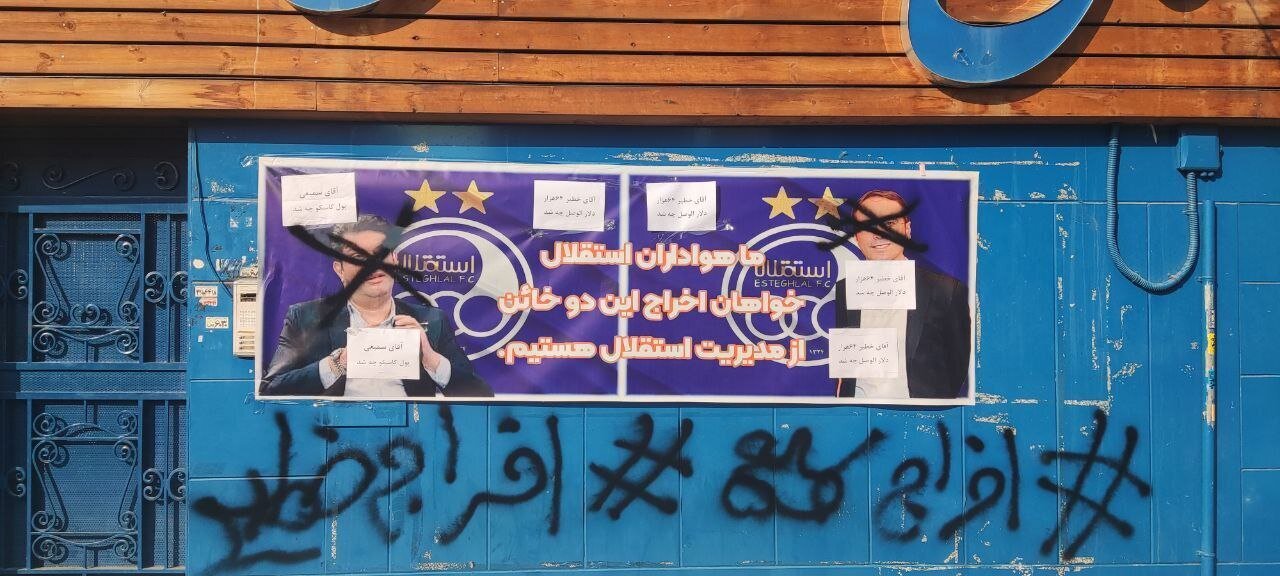 آقای سمیعی
پول گاسکو چه شد
آقای خطیر ۶۴هزار
دلار الوصل چه شد
آقای خطیر ۶۴هزار
دلار الوصل چه شد
استقلال
ESTEGHLAL F.C
استقلال
ESTEGHLAL F.C
۱۳۲۴
ما هواداران استقلال
خواهان اخراج این دو خائن
از مدیریت استقلال هستیم.
آقای خطیر ۶۴هزار
دلار الوصل چه شد
آقای سمیعی
پول گاسکو چه شد
آقای خطیر ۶۴هزار
دلار الوصل چه شد
#اخراج سمیعی #اخراج خطیر